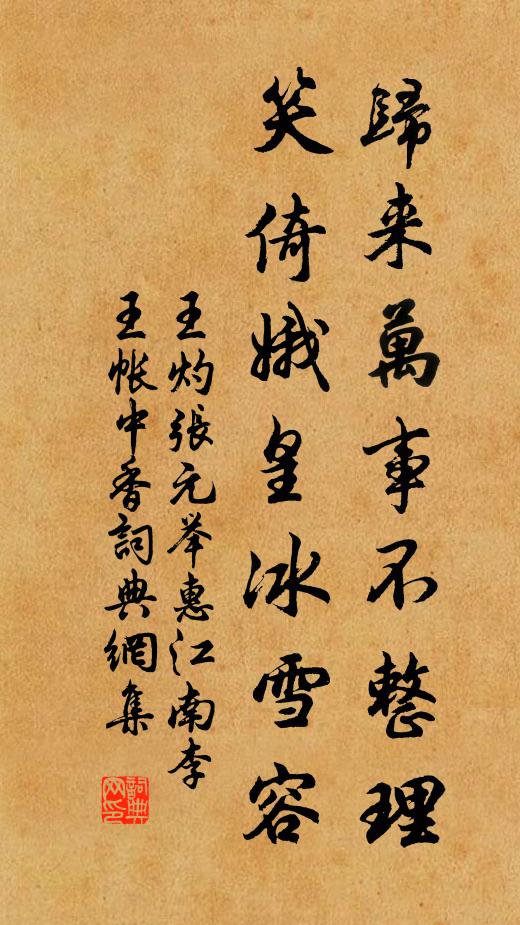 歸来萬事不整理
笑倚娥皇冰雪容
王灼張元举惠江南李
王帐中香詞典網集
詞典网印